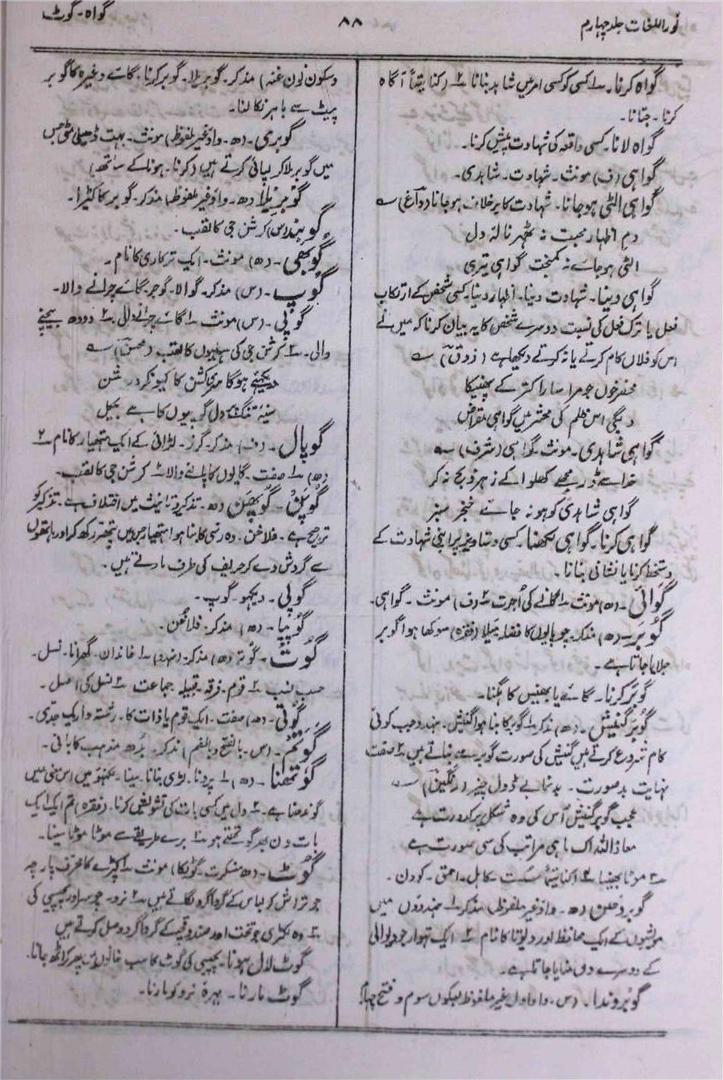 نوراللغات جلد چہارم
۸۸
گواہ - گوٹ
گواہ کرنا۔ ۱ کسی کو کسی امر میں شاہد بنانا ۲ (کنایتہً) آگاہ
کرنا۔ جتانا۔
گواہ لانا۔ کسی واقعہ کی شہادت پیش کرنا۔
گواہی (ف) مونث۔ شہادت۔ شاہدی۔
گواہی الٹی ہوجانا۔ شہادت کا برخلاف ہوجانا (داغ) ؎
دم اظہار محبت نہ ٹھہر نالۂ دل
الٹی ہوجائے نہ کمبخت گواہی تیری
گواہی دینا۔ شہادت دینا۔ اظہار دینا۔ کسی شخص کے ارتکاب
فعل یا ترک فعل کی نسبت دوسرے شخص کا یہ بیان کرنا کہ میں نے
اس کو فلاں کام کرتے یا نہ کرتے دیکھا ہے (ذوق) ؎
محضر خوں جو مرا سارا کتر کے پھینکا
دیگی اس ظلم کی محشر میں گواہی مقراض
گواہی شاہدی۔ مونث۔ گواہی (شرف) ؎
خدا سے ڈر مجھے کھلوا کے زہر ذبح نہ کر
گواہی شاہدی کو ہو نہ جائے خنجر سبز
گواہی کرنا۔ گواہی لکھنا۔ کسی دستاویز پر اپنی شہادت کے
دستخط کرنا یا نشانی بنانا۔
گوائی۔ (ھ) مونث ۱ گانے کی اجرت ۲ (ف) مونث۔ گواہی۔
گوبر۔ (ھ) مذکر۔ چوپایوں کا فضلہ۔ میلا (فقرہ) سوکھا ہوا گوبر
جلایا جاتا ہے۔
گوبر کرنا۔ گائے یا بھینس کا ہگنا۔
گوبر گنیش۔ (ھ) مذکر ۱ گوبر کا بنا ہوا گنیش۔ ہندو جب کوئی
کام شروع کرتے ہیں گنیش کی صورت گوبر سے بناتے ہیں ۲ صفت
نہایت بدصورت۔ بدنما بے ڈول چیز (رنگین) ؎
عجب گوبر گنیش اس کی وہ شکل پر کدورت ہے
معاذ اللہ اک ماہی مراتب کی سی صورت ہے
۳ موٹا بھدا ۴ سست کاہل۔ احمق۔ کودن۔
گوبردھن (ھ۔ واو غیر ملفوظ) مذکر ۱ ہندووں میں
مویشیوں کے ایک محافظ اور دیوتا کا نام ۲ ایک تہوار جو دیوالی
کے دوسرے دن منایا جاتا ہے۔
گوبروندا۔ (س۔ واو اول غیر ملفوظ بسکون سوم و فتح چہارم
و سکون نون غنہ) مذکر۔ گوبریلا۔ گوبر کرنا۔ گائے وغیرہ کا گوبر
پیٹ سے باہر نکالنا۔
گوبری۔ (ھ۔ واو غیر ملفوظ) مونث۔ بہت ڈھیلی مٹی جس
میں گوبر ملا کر لپائی کرتے ہیں (کرنا۔ ہونا کے ساتھ)
گوبریلا (ھ۔ واو غیر ملفوظ) مذکر۔ گوبر کا کیڑا۔
گوبند (س) کرشن جی کا لقب۔
گوبھی۔ (ھ) مونث۔ ایک ترکاری کا نام۔
گوپ۔ (س) مذکر۔ گوالا۔ گوجر۔ گائے چرانے والا۔
گوپی۔ (س) مونث ۱ گائے چرانے والی ۲ دودھ بیچنے
والی۔ ۳ کرشن جی کی سہیلیوں کا لقب (محسن) ؎
دیکھئے ہوگا سری کرشن کا کیونکر درشن
سینہ تنگ میں دل گوپیوں کا ہے بیکل
گوپال۔ (ف) مذکر۔ گرز۔ لڑائی کے ایک ہتھیار کا نام ۲
(ھ) ۱ صفت۔ گایوں کا پالنے والا ۲ کرشن جی کا لقب۔
گوپھن۔ گوپھن (ھ۔ تذکیر و تانیث میں اختلاف ہے۔ تذکیر کو
ترجیح ہے۔ فلاخن۔ وہ رسی کا بنا ہوا ہتھیار جس میں پتھر رکھ کر اور ہاتھوں
سے گردش دے کر حریف کی طرف مارتے ہیں۔
گوپی۔ دیکھو۔ گوپ۔
گوپیا۔ (ھ) مذکر۔ فلاخن۔
گوت۔ گوتر (ھ) مذکر۔ (ہندو) ۱ خاندان۔ گھرانا۔ نسل۔
حسب نسب ۲ قوم۔ فرقہ۔ قبیلہ جماعت ۳ نسل کی اصل۔
گوتی۔ (ھ) صفت۔ ایک قوم یا ذات کا۔ رشتہ دار یک جدی۔
گوتم۔ (س۔ بالفتح و بالضم) مذکر۔ بدھ مذہب کا بانی۔
گوتھنا (ھ) ۱ پرونا۔ لڑی بنانا۔ سینا۔ لکھنؤ میں اس معنی میں
گوندھنا ہے۔ ۲ دل میں کسی بات کی تشویش کرنا۔ (فقرہ) تم ایک ایک
بات دن بھر گوتھتے ہو ۳ برے طریقے سے موٹا موٹا سینا۔
گوٹ۔ (ھ) سنسکرت۔ گوٹکا) مونث ۱ کپڑے کا محرف پارچہ
جو تراش کر لباس کے گرداگرد لگاتے ہیں ۲ نرد۔ چوسر اور پچیسی کی
۳ وہ لکڑی جو تخت اور صندوقچے کے گرداگرد وصل کرتے ہیں
گوٹ لال ہونا۔ پچیسی کی گوٹ کا سب خانوں میں پھر کر اٹھ جانا۔
گوٹ مارنا۔ مہرہ نرد کو مارنا۔